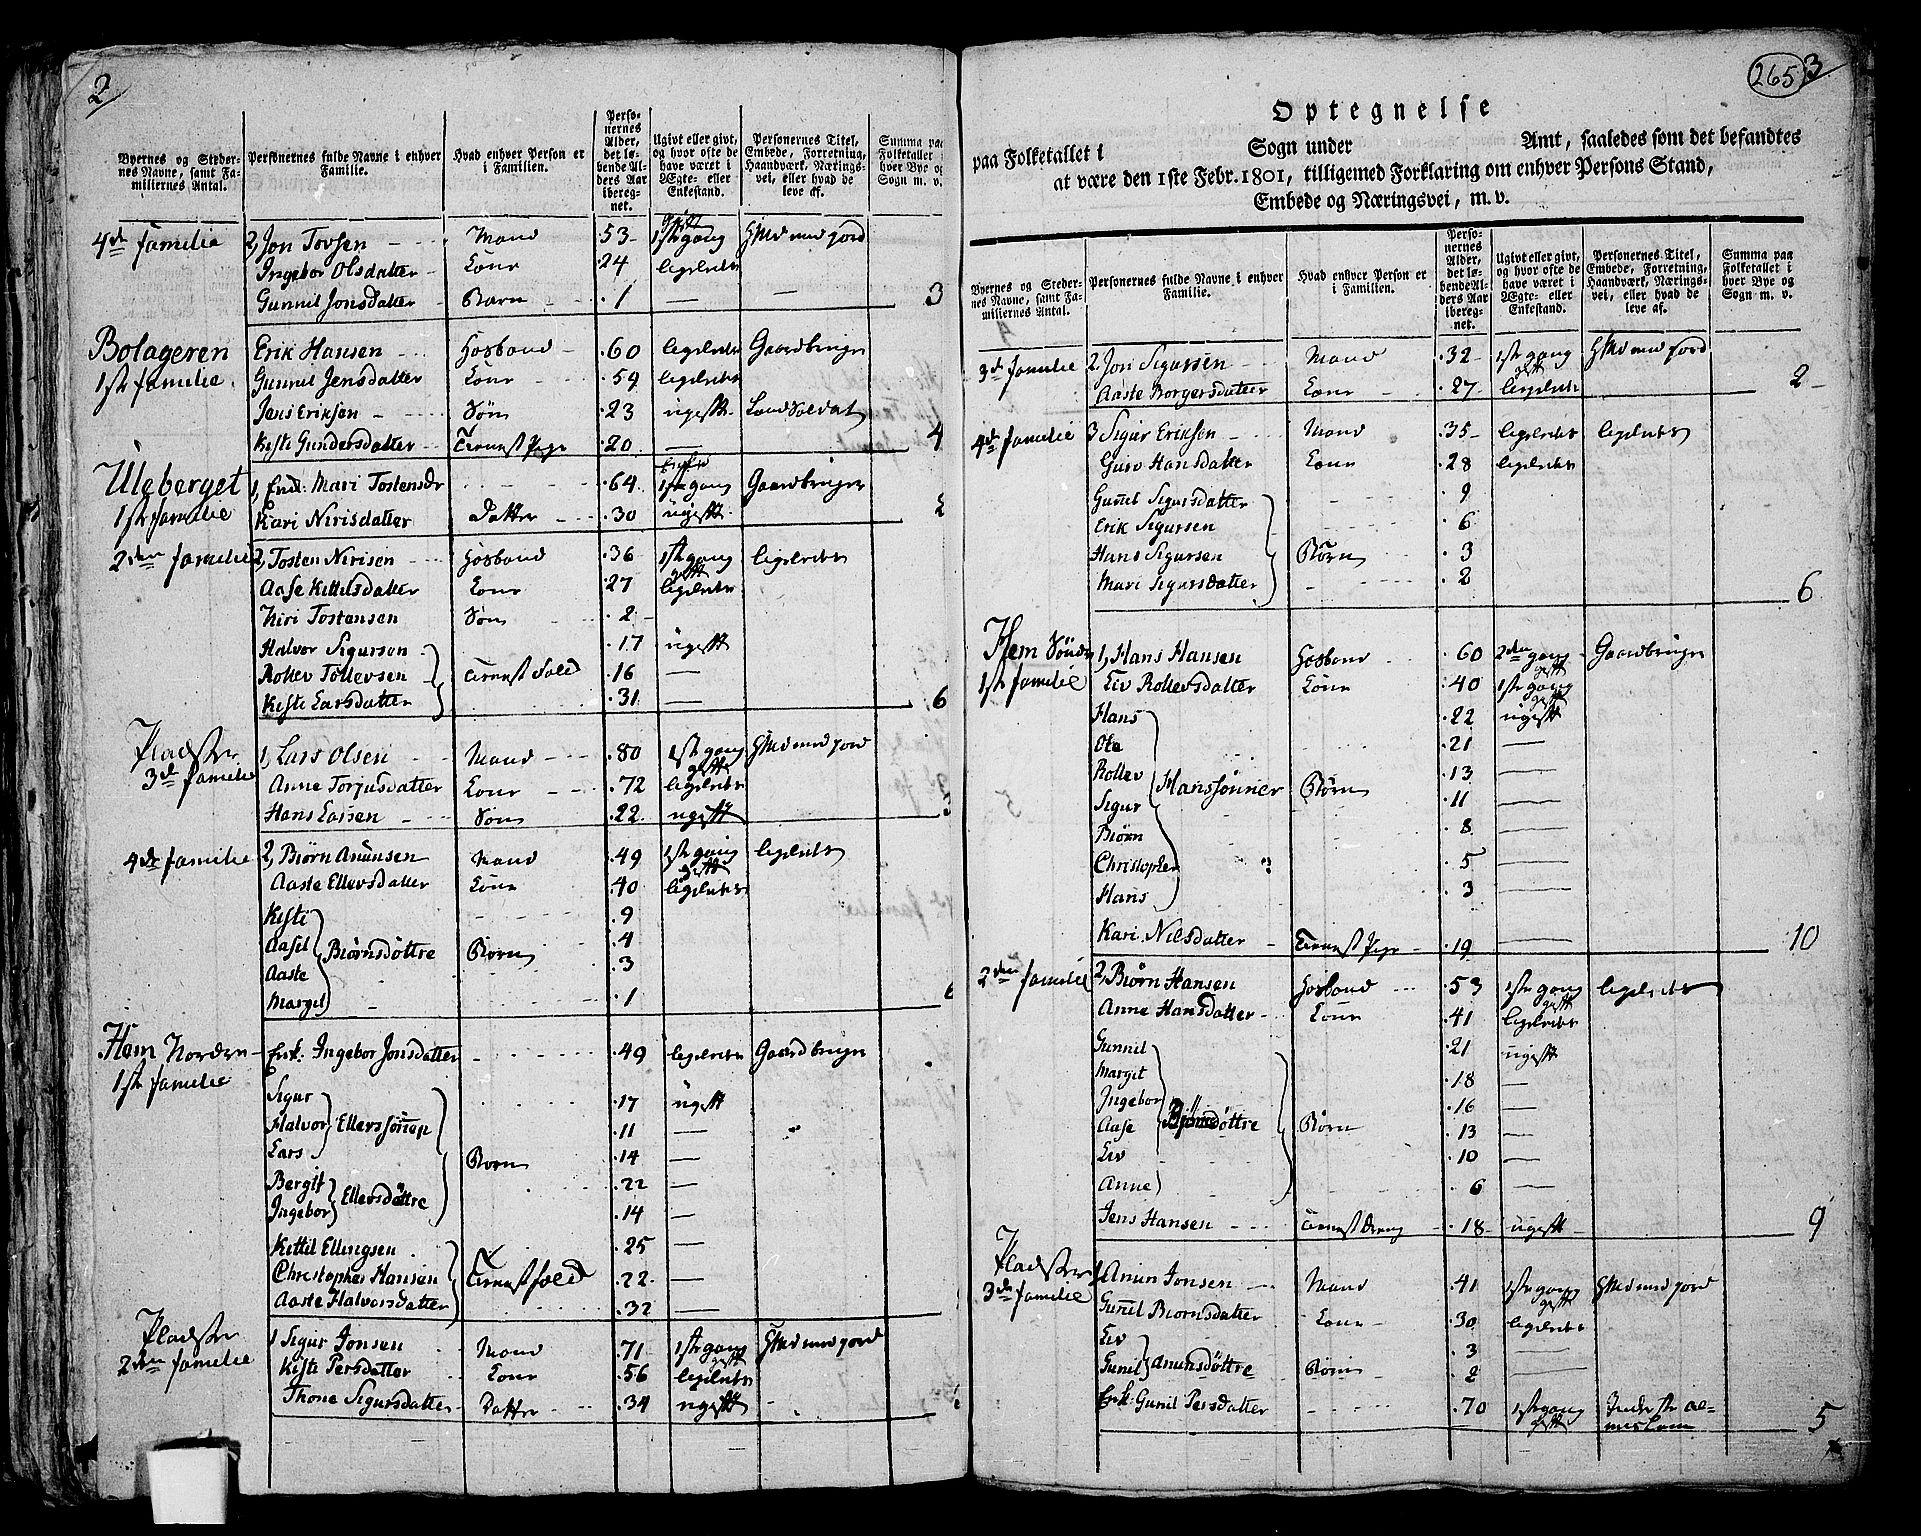 2
Byernes og Steder-nes Navne, samt Fa-miliernes Antal.
Personernes fulde Navne i enhver Familie.
Hvad enhver Person er i Familien.
Perso-nernes Alder, det lø-bende Al-ders Aar iberegnet.
Ugivt eller givt, og hvor ofte de have været i Ægte- eller Enkestand.
Personernes Titel, Embede, Forretning, Haandværk, Nærings-vei, eller hvad de leve af.
Summa paa Folketallet i hver Bye og Sogn m. v.
4de familie 2, Jon Tovsen Mand 53 1ste gang gift Huusmd med jord
Ingebor Olsdatter Kone 24 ligeledes
Gunnil Jonsdatter Barn 1 — 3
Bolageren Erik Hansen Hosbond 60 ligeledes Gaardbruger
1ste familie Gunnil Jensdatter Kone 59 ligeledes
Jens Eriksen Søn 23 ugift Land Soldat
Kiste Gundersdatter Tienest Pige 20 — 4
Uleberget 1, Enk: Mari Tostensdr 64 1ste gang Gaardbruger
1ste familie Kari Nirisdatter Datter 30 ugift 2
2den familie 2, Tosten Nirisen Hosbond 36 1ste gang gift ligeledes
Aase Kittilsdatter Kone 27 ligeledes
Niri Tostensen Søn 2
Halvor Sigurson 17 ugift
Rollev Tollevsen Tienest Folk 16 —
Kiste Larsdatter 31 — 6
Pladser 1, Lars Olsen Mand 80 1ste gang gift Huusmd med jord
3de familie Anne Torjusdatter Kone 72 ligeledes
Hans Larsen Søn 22 ugift 3
4de familie 2, Biørn Anunsen Mand 49 1ste gang gift ligeledes
Aaste Ellevsdatter Kone 40 ligeledes
Kiste 9
Aasil Biørnsdøttre Børn 4
Aaste 3
Margit 1 6
Hem Nordre Enk: Ingebor Jonsdatter 49 ligeledes Gaardbruger
1ste familie
Sigur 17 ugift
Halvor Ellevssønner 11 —
Lars Børn 14 —
Bergit 22 —
Ingebor Ellevsdøttre 14 —
Kittil Ellingsen 25 —
Christopher Hansen Tienestfolk 22 —
Aaste Halvorsdatter 32 —
Pladser 1 Sigur Jonsen Mand 71 1ste gang gift Huusmd med jord
2den familie Kiste Persdatter Kone 56 ligeledes
Thone Sigursdatter Datter 34 ugift
265 3
Optegnelse
paa Folketallet i Sogn under Amt, saaledes som det befandtes
at være den 1ste Febr. 1801, tilligemed Forklaring om enhver Persons Stand,
Embede og Næringsvei, m. v.
Byernes og Steder-nes Navne, samt Fa-miliernes Antal.
Personernes fulde Navne i enhver Familie.
Hvad enhver Person er i Familien.
Perso-nernes Alder, det lø-bende Al-ders Aar iberegnet.
Ugivt eller givt, og hvor ofte de have været i Ægte- eller Enkestand.
Personernes Titel, Embede, Forretning, Haandværk, Nærings-vei, eller hvad de leve af.
Summa paa Folketallet i hver Bye og Sogn m. v.
3de familie 2 Jon Sigursen Mand 32 1ste gang gift Huusmd med jord
Aaste Borgersdatter Kone 27 ligeledes 2
4de familie 3 Sigur Eriksen Mand 35 ligeledes ligeledes
Guro Hansdatter Kone 28 ligeledes
Gunil Sigursdatter 9
Erik Sigursen 6
Hans Sigursen Børn 3
Mari Sigursdatter 2 6
Hem Søndre 1, Hans Hansen Hosbond 60 2den gang gift Gaardbruger
1ste familie Liv Rollevsdatter Kone 40 1ste gang gift
Hans 22 ugift
Ole 21 —
Rollev 13 —
Sigur Hanssønner Børn 11 —
Biørn 8 —
Christopher 5 —
Hans 3 —
Kari Nilsdatter Tienest Pige 19 — 10
2den familie 2, Biørn Hansen Hosbond 53 1ste gang gift ligeledes
Anne Hansdatter Kone 41 ligeledes
Gunnil 21 ugift
Margit 18 —
Ingebor 16 —
Aase Bjørnsdøttre Børn 13 —
Liv 10 —
Anne 6 —
Jens Hansen Tienest Dreng 18 ugift 9
Pladser
3de familie 1 Anun Jonsen Mand 41 1ste gang gift Huusmd med jord
Gunil Biørnsdatter Kone 30 ligeledes
Liv 3 —
Gunil Anunsdøttre Børn 2 —
Enk: Gunil Persdatter 70 1ste gang gift Inderste Al-mislem 5